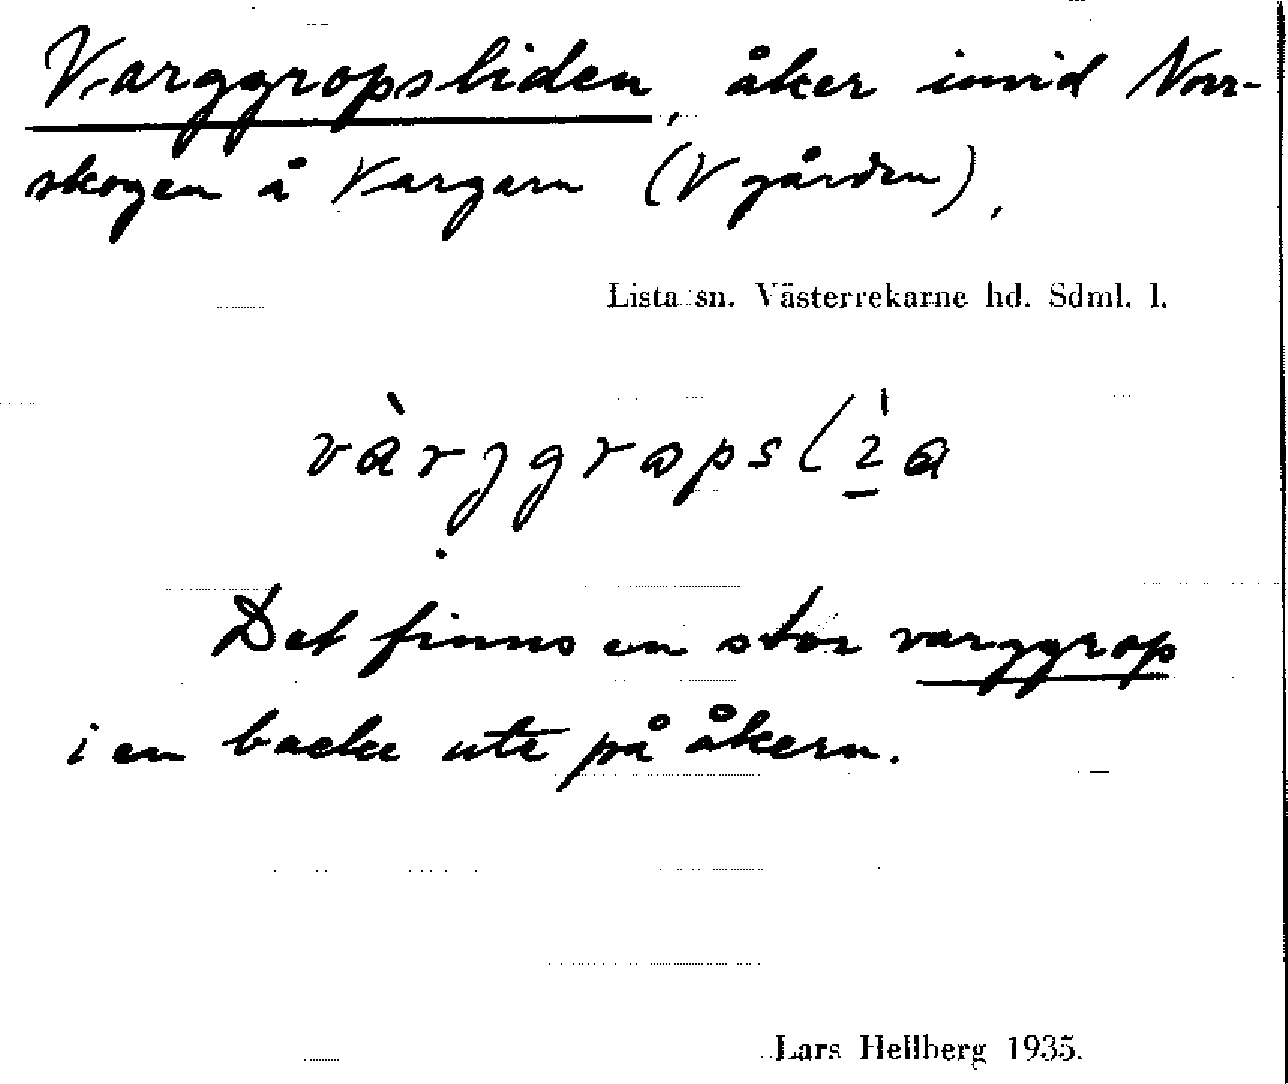 Varggropsliden, åker invid Norr-
skogen å Vargarn (V gården),
Lista sn. Västerrekarne hd. Sdml. l.
Det finns en stor varggrop
i en backe ute på åkern.
Lars Hellberg 1935.